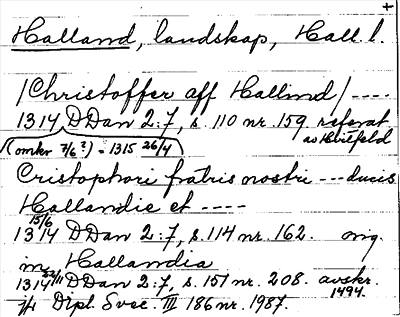 +
Halland, landskap, Hall. l.
/Christoffer aff Hallind/ ----
1314 DDan 2:7, s. 110 nr. 159 referat
av Hvitfeld
(omkr 7/6?) - 1315 26/4
Cristophori fratris nostri --- ducis
Hallandie et ----
15/6
1314 DDan 2:7, s. 114 nr. 162. orig.
in Hallandia
22/11
1314 DDan 2:7, s. 151 nr. 208. avskr.
1494.
jfr Dipl. Svec. III 186 nr. 1987.